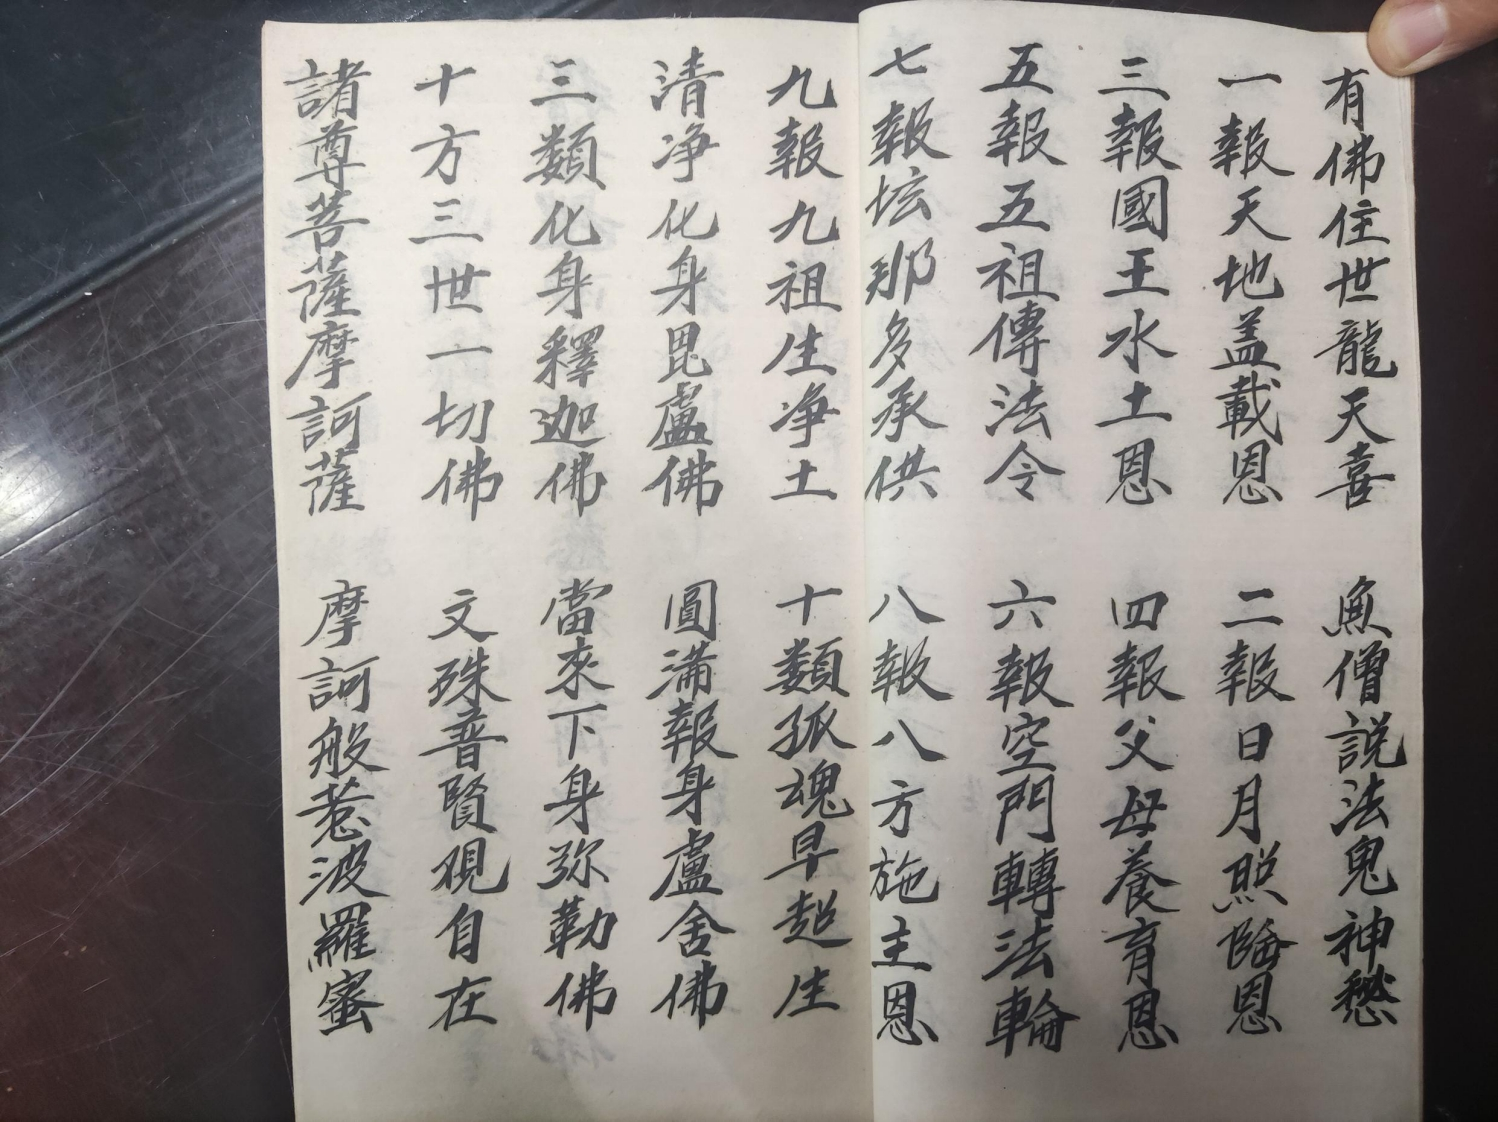 有佛住世龍天喜 無僧説法鬼神愁
一報天地盖載恩 二報日月照臨恩
三報國王水土恩 四報父母養育恩
五報五祖傳法令 六報空門轉法輪
七報坛那多承供 八報八方施主恩
九報九祖生净土 十類孤魂早超生
清净化身毘盧佛 圓滿報身盧舍佛
三類化身釋迦佛 當來下身弥勒佛
十方三世一切佛 文殊普賢观自在
諸尊菩薩摩訶薩 摩訶般惹波羅蜜